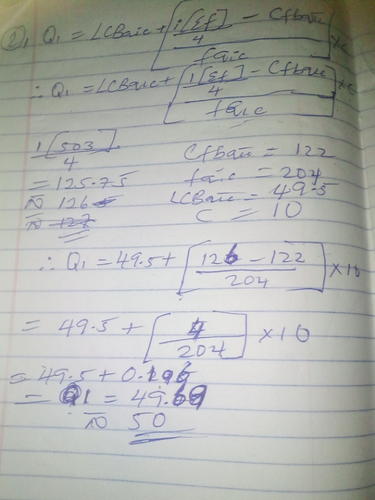 2, Q1 = LCBaic + [1[Σf]/4 - Cfbaic / faic] × c
∴ Q1 = LCBaic + [1[Σf]/4 - Cfbaic / faic] × c
1[503]/4
= 125.75
≈ 126
≈ 127
Cfbaic = 122
faic = 204
LCBaic = 49.5
C = 10
∴ Q1 = 49.5 + [126 - 122 / 204] × 10
= 49.5 + [4 / 204] × 10
= 49.5 + 0.196
= Q1 = 49.69
≈ 50